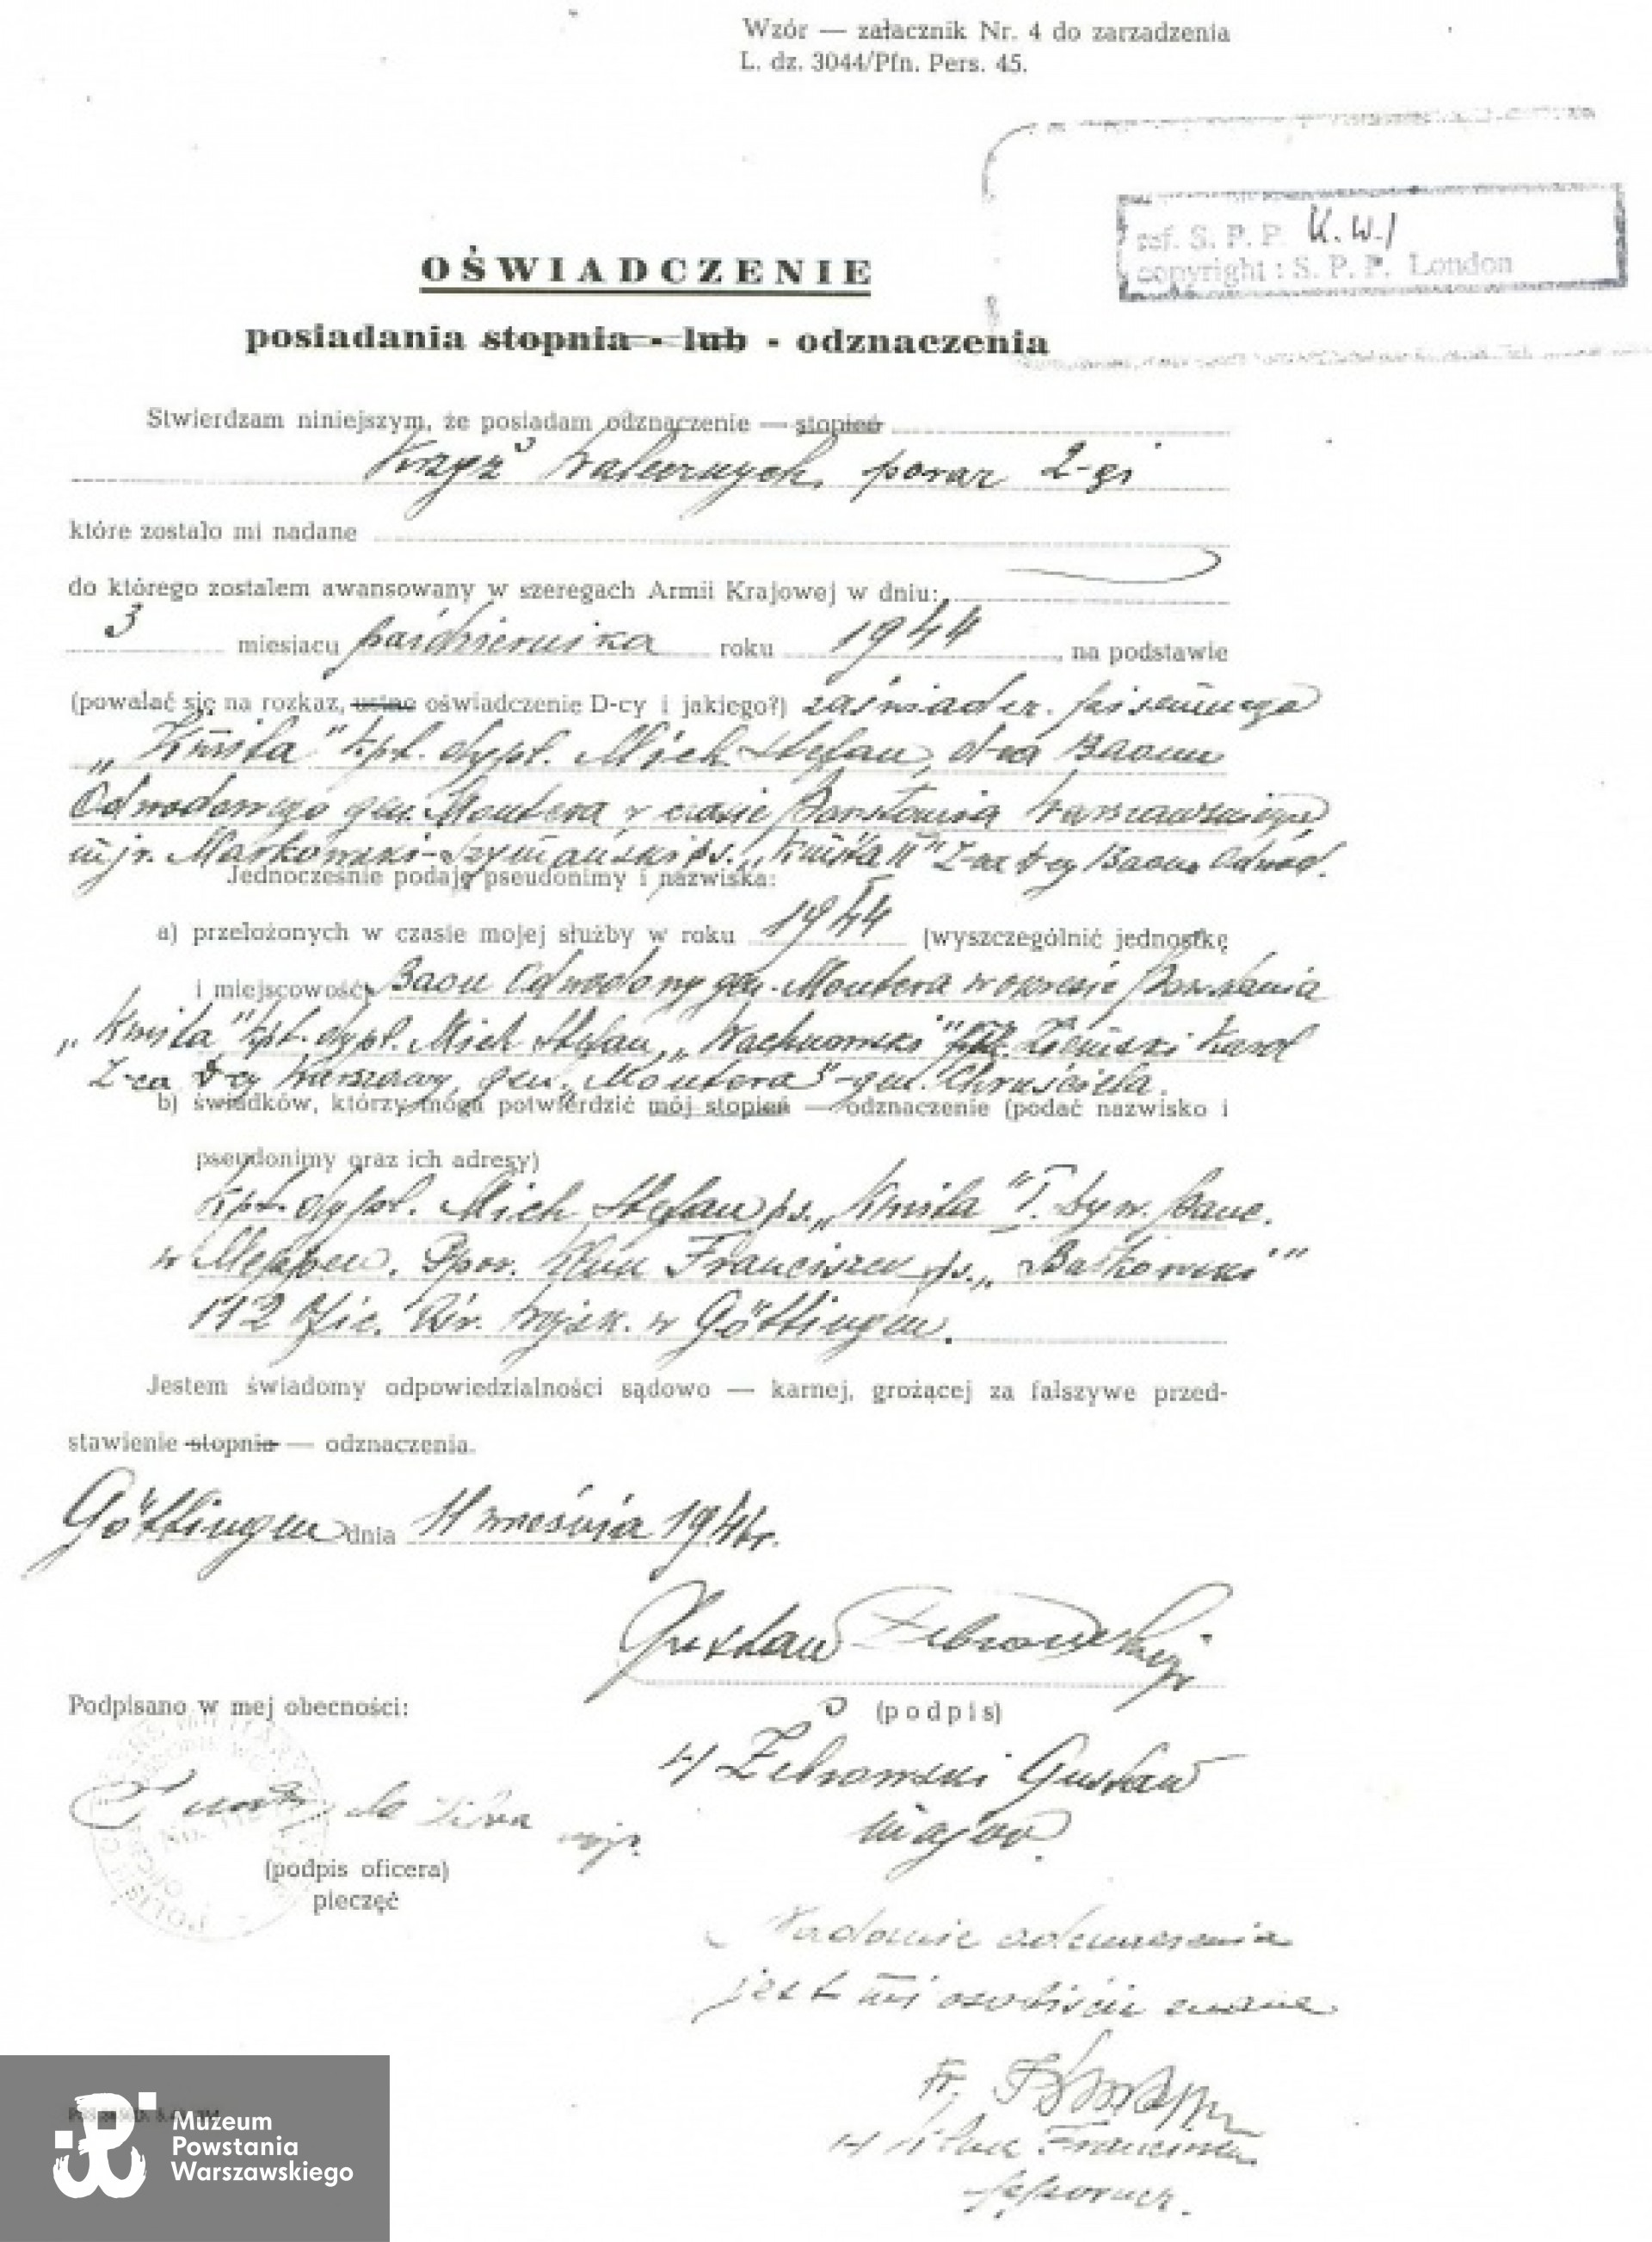 Wzór — załacznik Nr. 4 do zarzadzenia
L. dz. 3044/Pfn. Pers. 45.
ref. S. P. P. K.W.1
copyright : S. P. P. London
OŚWIADCZENIE
posiadania stopnia - lub - odznaczenia
Stwierdzam niniejszym, że posiadam odznaczenie — stopień
Krzyż Walecznych, poraz 2-gi
które zostało mi nadane
do którego zostałem awansowany w szeregach Armii Krajowej w dniu:
3 miesiacu października roku 1944, na podstawie
(powałać się na rozkaz, ustne oświadczenie D-cy i jakiego?) zaświadcz. pisemnego
„Kmita" kpt. dypl. Mich Stefan, d-ca Baonu
Odwodowego gen. Montera w czasie Powstania Warszawskiego
mjr. Markowski-Szymański ps. „Kmita II" Z-ca d-cy Baonu Odwod.
Jednocześnie podaję pseudonimy i nazwiska:
a) przełożonych w czasie mojej służby w roku 1944 (wyszczególnić jednostkę
i miejscowość) Baon Odwodowy gen. Montera w okresie Powstania
„Kmita" kpt. dypl. Mich Stefan, „Wachnowski" Ziemski Karol
Z-ca D-cy Warszawy, gen. „Montera" - gen. Chruściela.
b) świadków, którzy mogą potwierdzić mój stopień — odznaczenie (podać nazwisko i
pseudonimy oraz ich adresy)
kpt. dypl. Mich Stefan ps. „Kmita" I. Dyw. Panc.
w Meppen. Ppor. Franciszek ps. „Butkowski"
112 Ofic. Wojsk. w Göttingen.
Jestem świadomy odpowiedzialności sądowo — karnej, grożącej za fałszywe przed-
stawienie stopnia — odznaczenia.
Göttingen dnia 11 września 194 r.
Gustaw Żebrowski
Podpisano w mej obecności:
(podpis)
Żebrowski Gustaw
major.
mjr.
(podpis oficera)
pieczęć
Nadanie odznaczenia
jest mi osobiście znane
Fr.
Franciszek
ppłoruczn.
Muzeum
Powstania
Warszawskiego